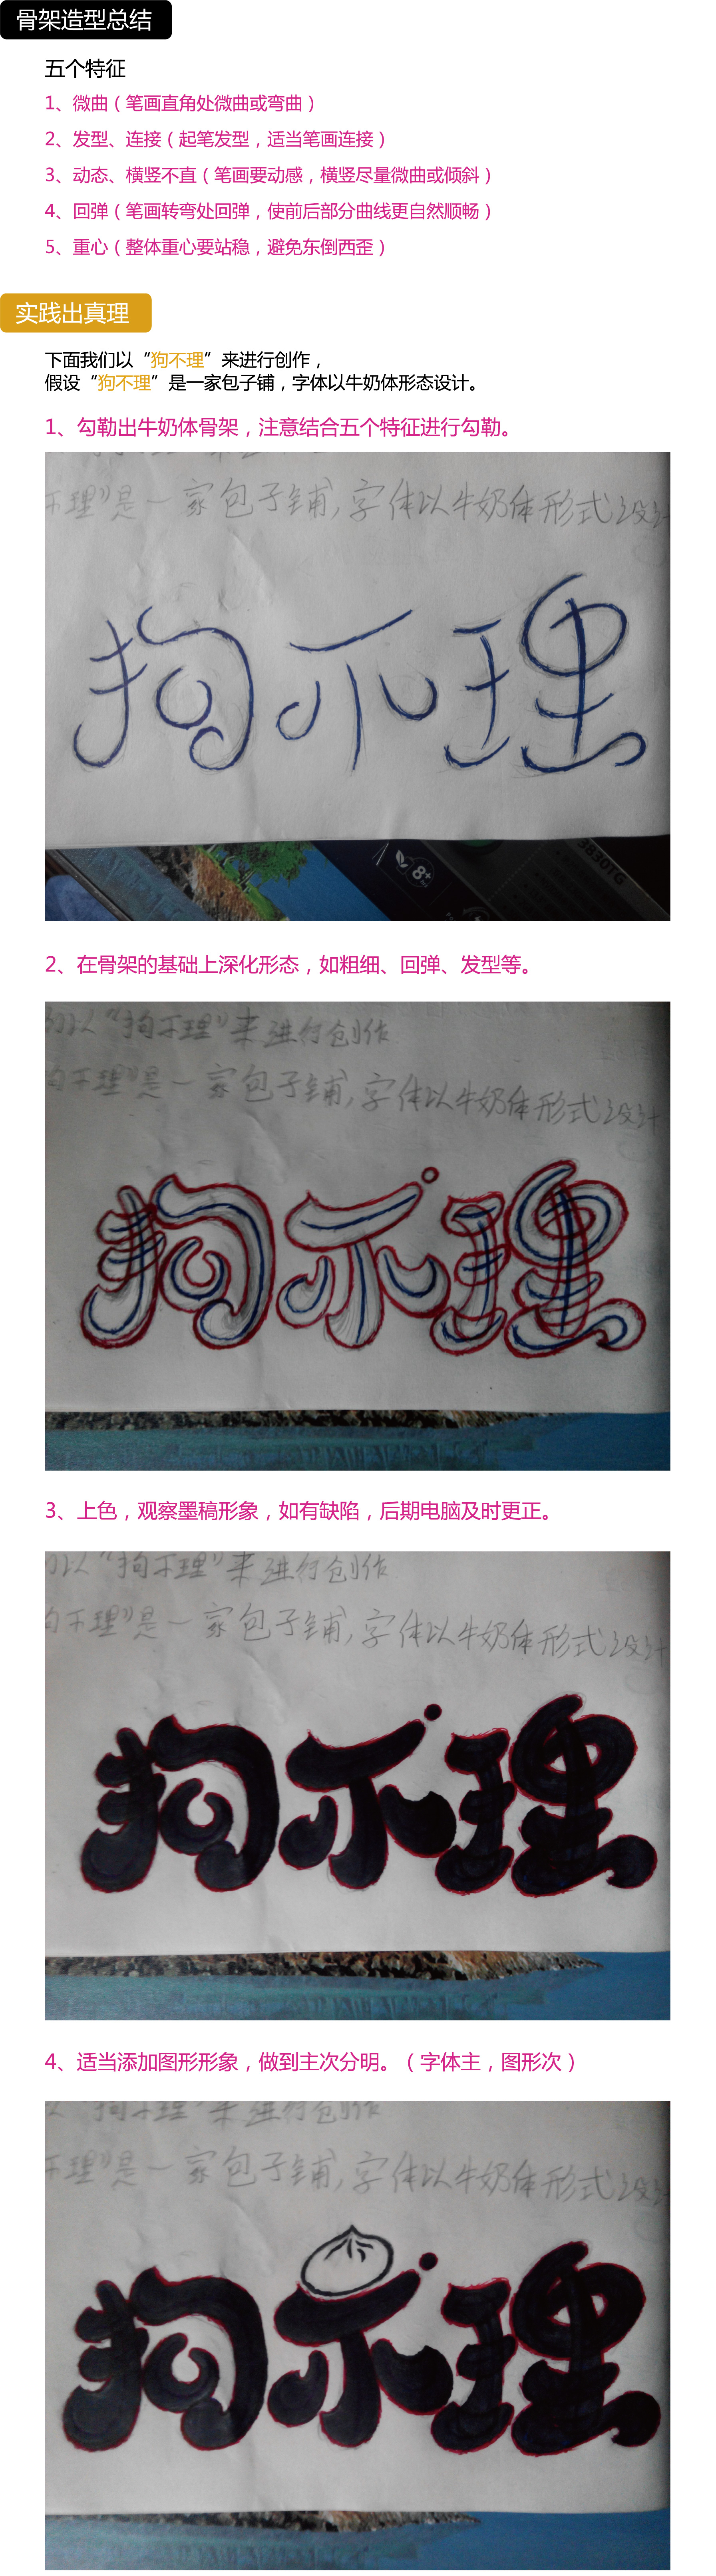 骨架造型总结
五个特征
1、微曲（笔画直角处微曲或弯曲）
2、发型、连接（起笔发型，适当笔画连接）
3、动态、横竖不直（笔画要动感，横竖尽量微曲或倾斜）
4、回弹（笔画转弯处回弹，使前后部分曲线更自然顺畅）
5、重心（整体重心要站稳，避免东倒西歪）
实践出真理
下面我们以“狗不理”来进行创作，
假设“狗不理”是一家包子铺，字体以牛奶体形态设计。
1、勾勒出牛奶体骨架，注意结合五个特征进行勾勒。
不理”是一家包子铺，字体以牛奶体形式设计
狗不理
8+
3830TG
2、在骨架的基础上深化形态，如粗细、回弹、发型等。
以“狗不理”来进行创作
狗不理”是一家包子铺，字体以牛奶体形式设计
狗不理
3、上色，观察墨稿形象，如有缺陷，后期电脑及时更正。
以“狗不理”来进行创作
狗不理”是一家包子铺，字体以牛奶体形式设计
狗不理
4、适当添加图形形象，做到主次分明。（字体主，图形次）
“狗不理”来进行创作
不理”是一家包子铺，字体以牛奶体形式设计
狗不理